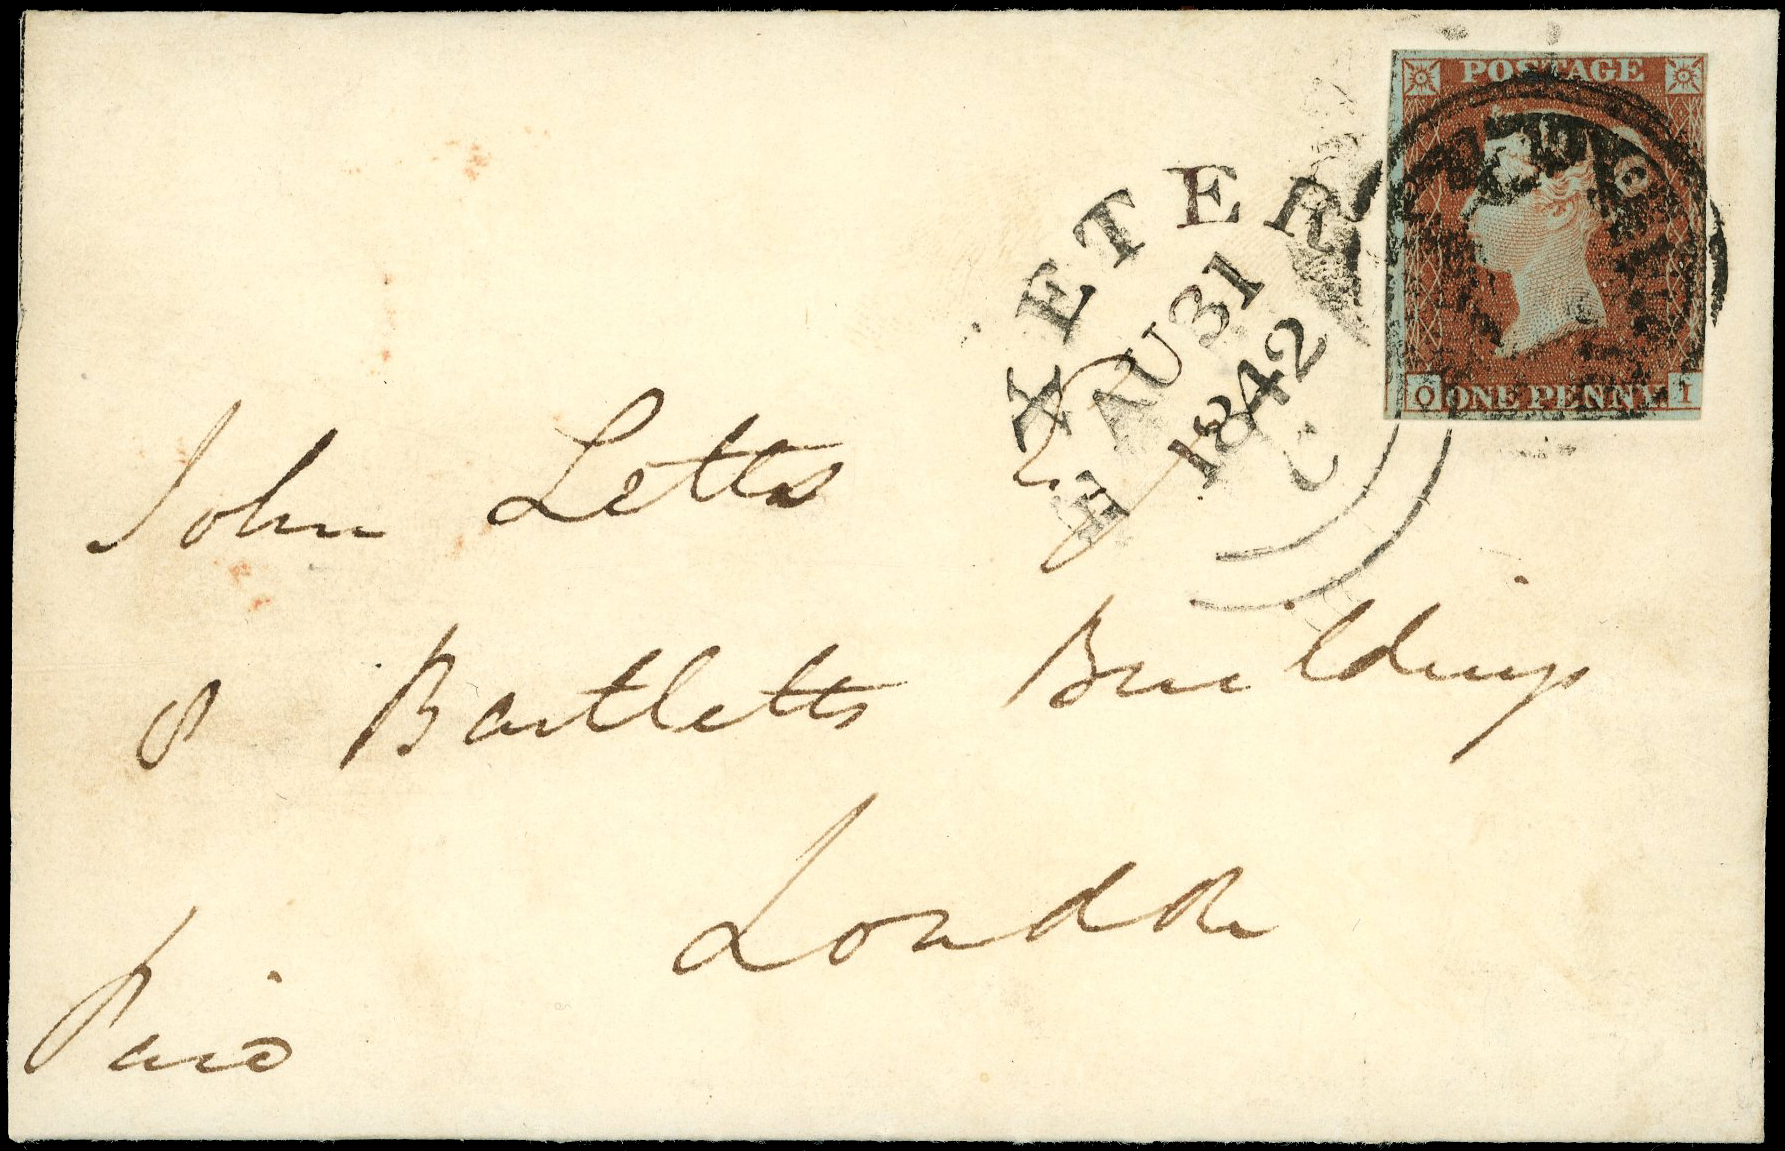 POSTAGE
O ONE PENNY I
EXETER
AU 31
1842
C
John Letts Esq
8 Bartletts Buildings
London
Paid